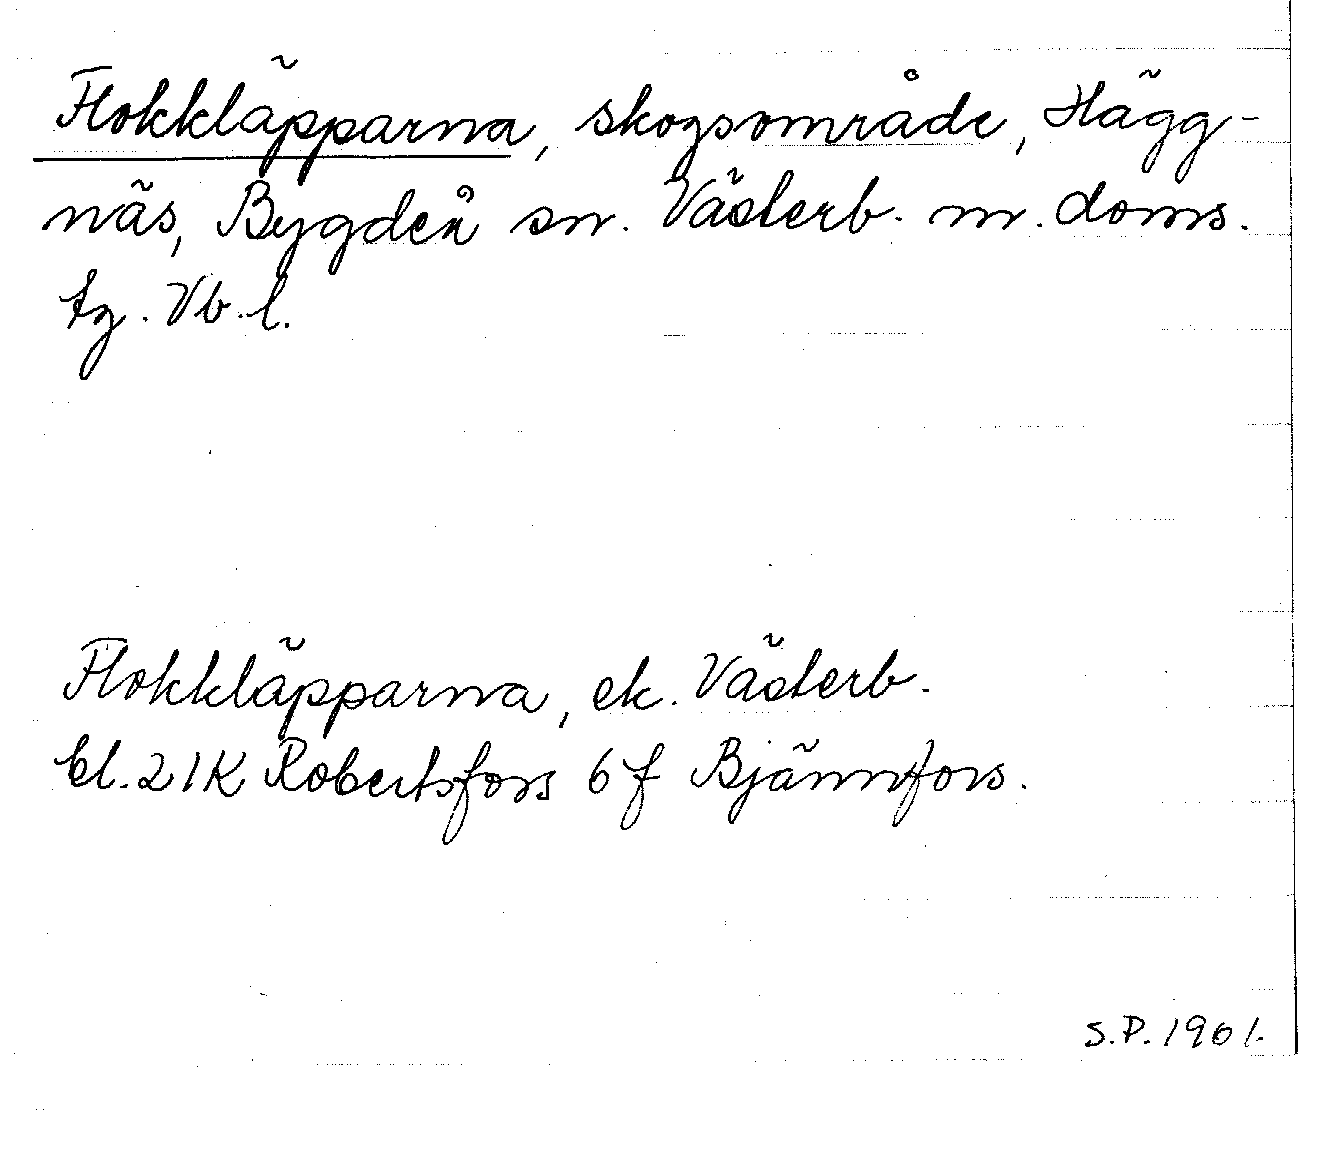 Flokkläpparna, skogsområde, Hägg-
näs, Bygdeå sn. Västerb. m. doms.
tg. Vb. l.
Flokkläpparna, ek. Västerb.
bl. 21K Robertsfors 6f Bjännfors.
S.P. 1961.